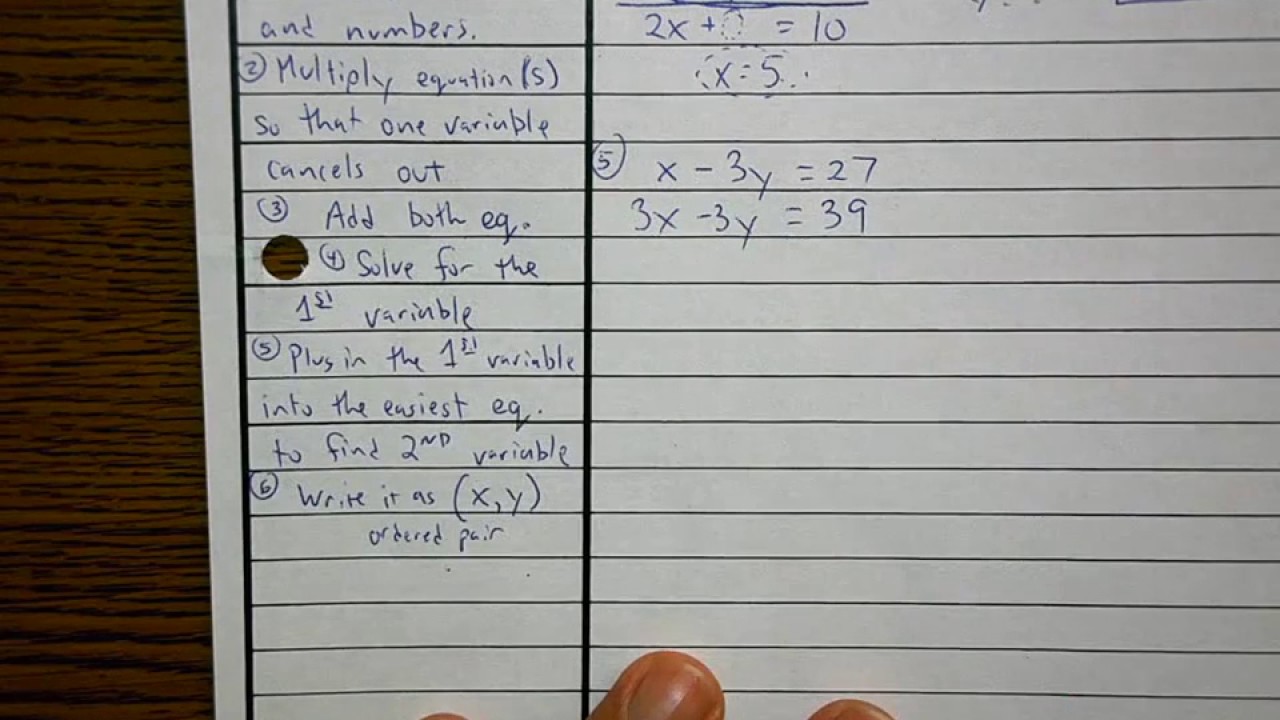 and numbers.
② Multiply equation(s)
so that one variable
cancels out
③ Add both eq.
④ Solve for the
1st variable
⑤ Plug in the 1st variable
into the easiest eq.
to find 2ND variable
⑥ Write it as (x,y)
ordered pair
2x + 0 = 10
x = 5
⑤ x - 3y = 27
3x - 3y = 39